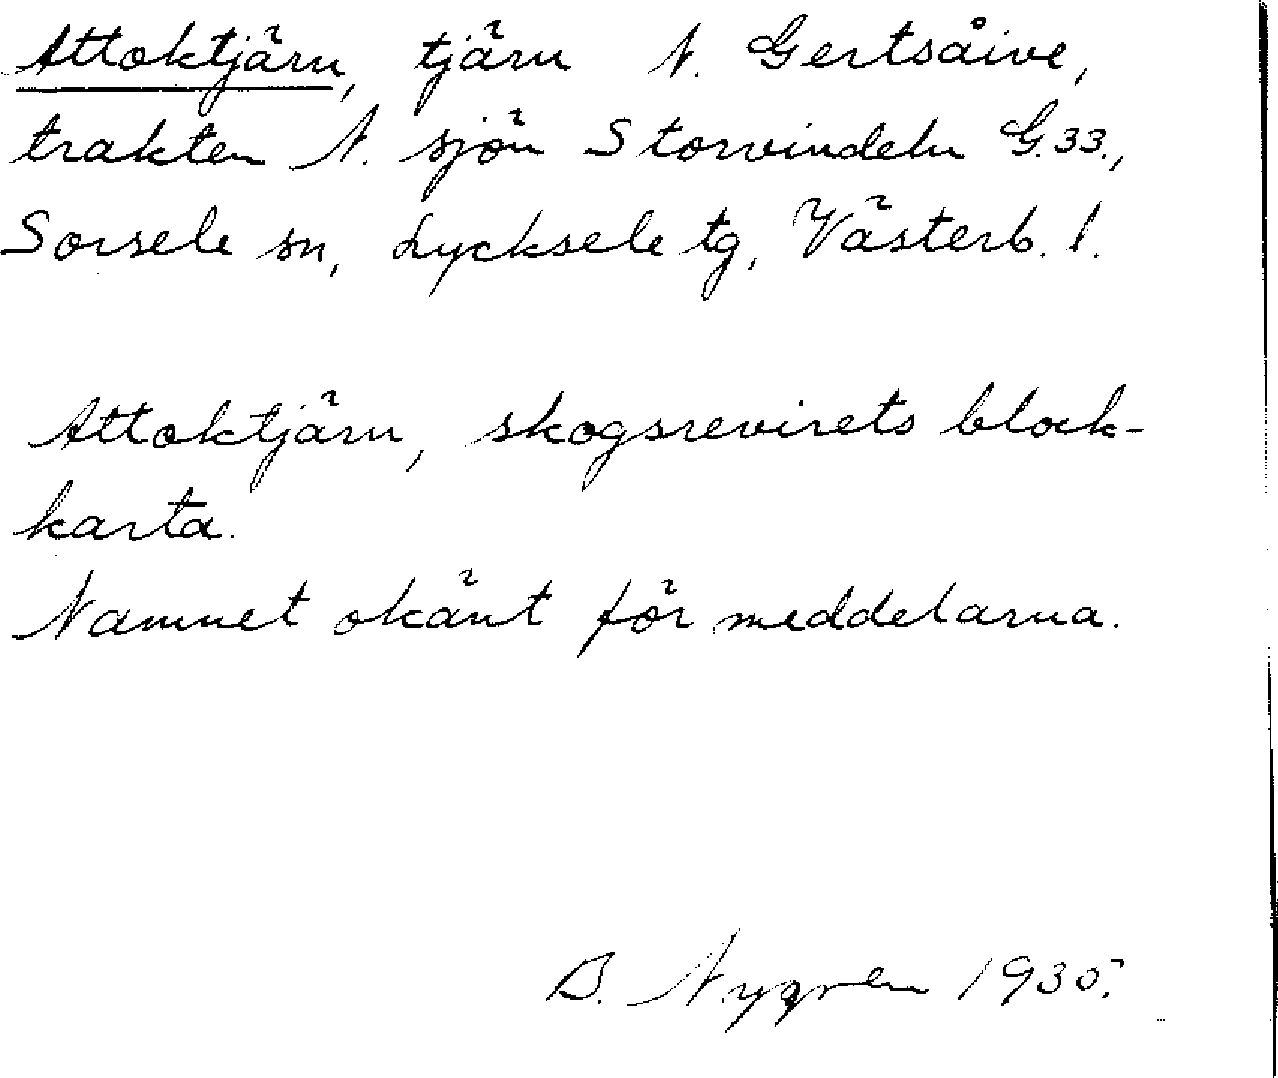 Attoktjärn, tjärn N. Gertsåive,
trakten N. sjön Storvindeln G.33.,
Sorsele sn, Lycksele tg, Västerb. l.
Attoktjärn, skogsrevirets block-
karta.
Namnet okänt för meddelarna.
B. Nygren 1935.